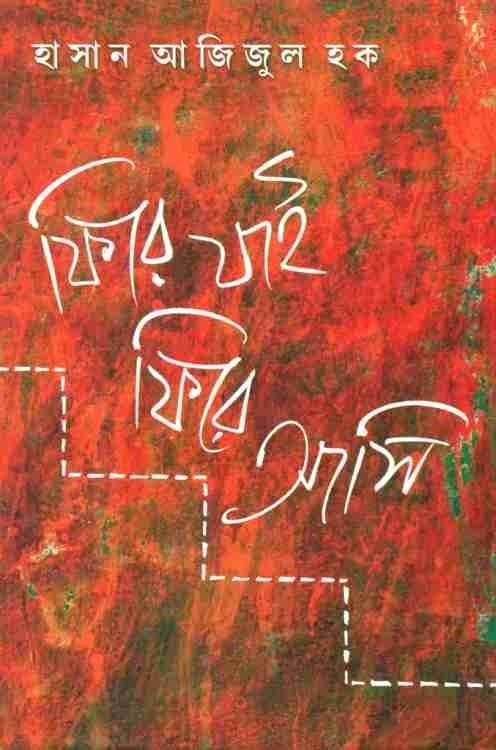 হাসান আজিজুল হক
ফিরে যাই
ফিরে
আসি